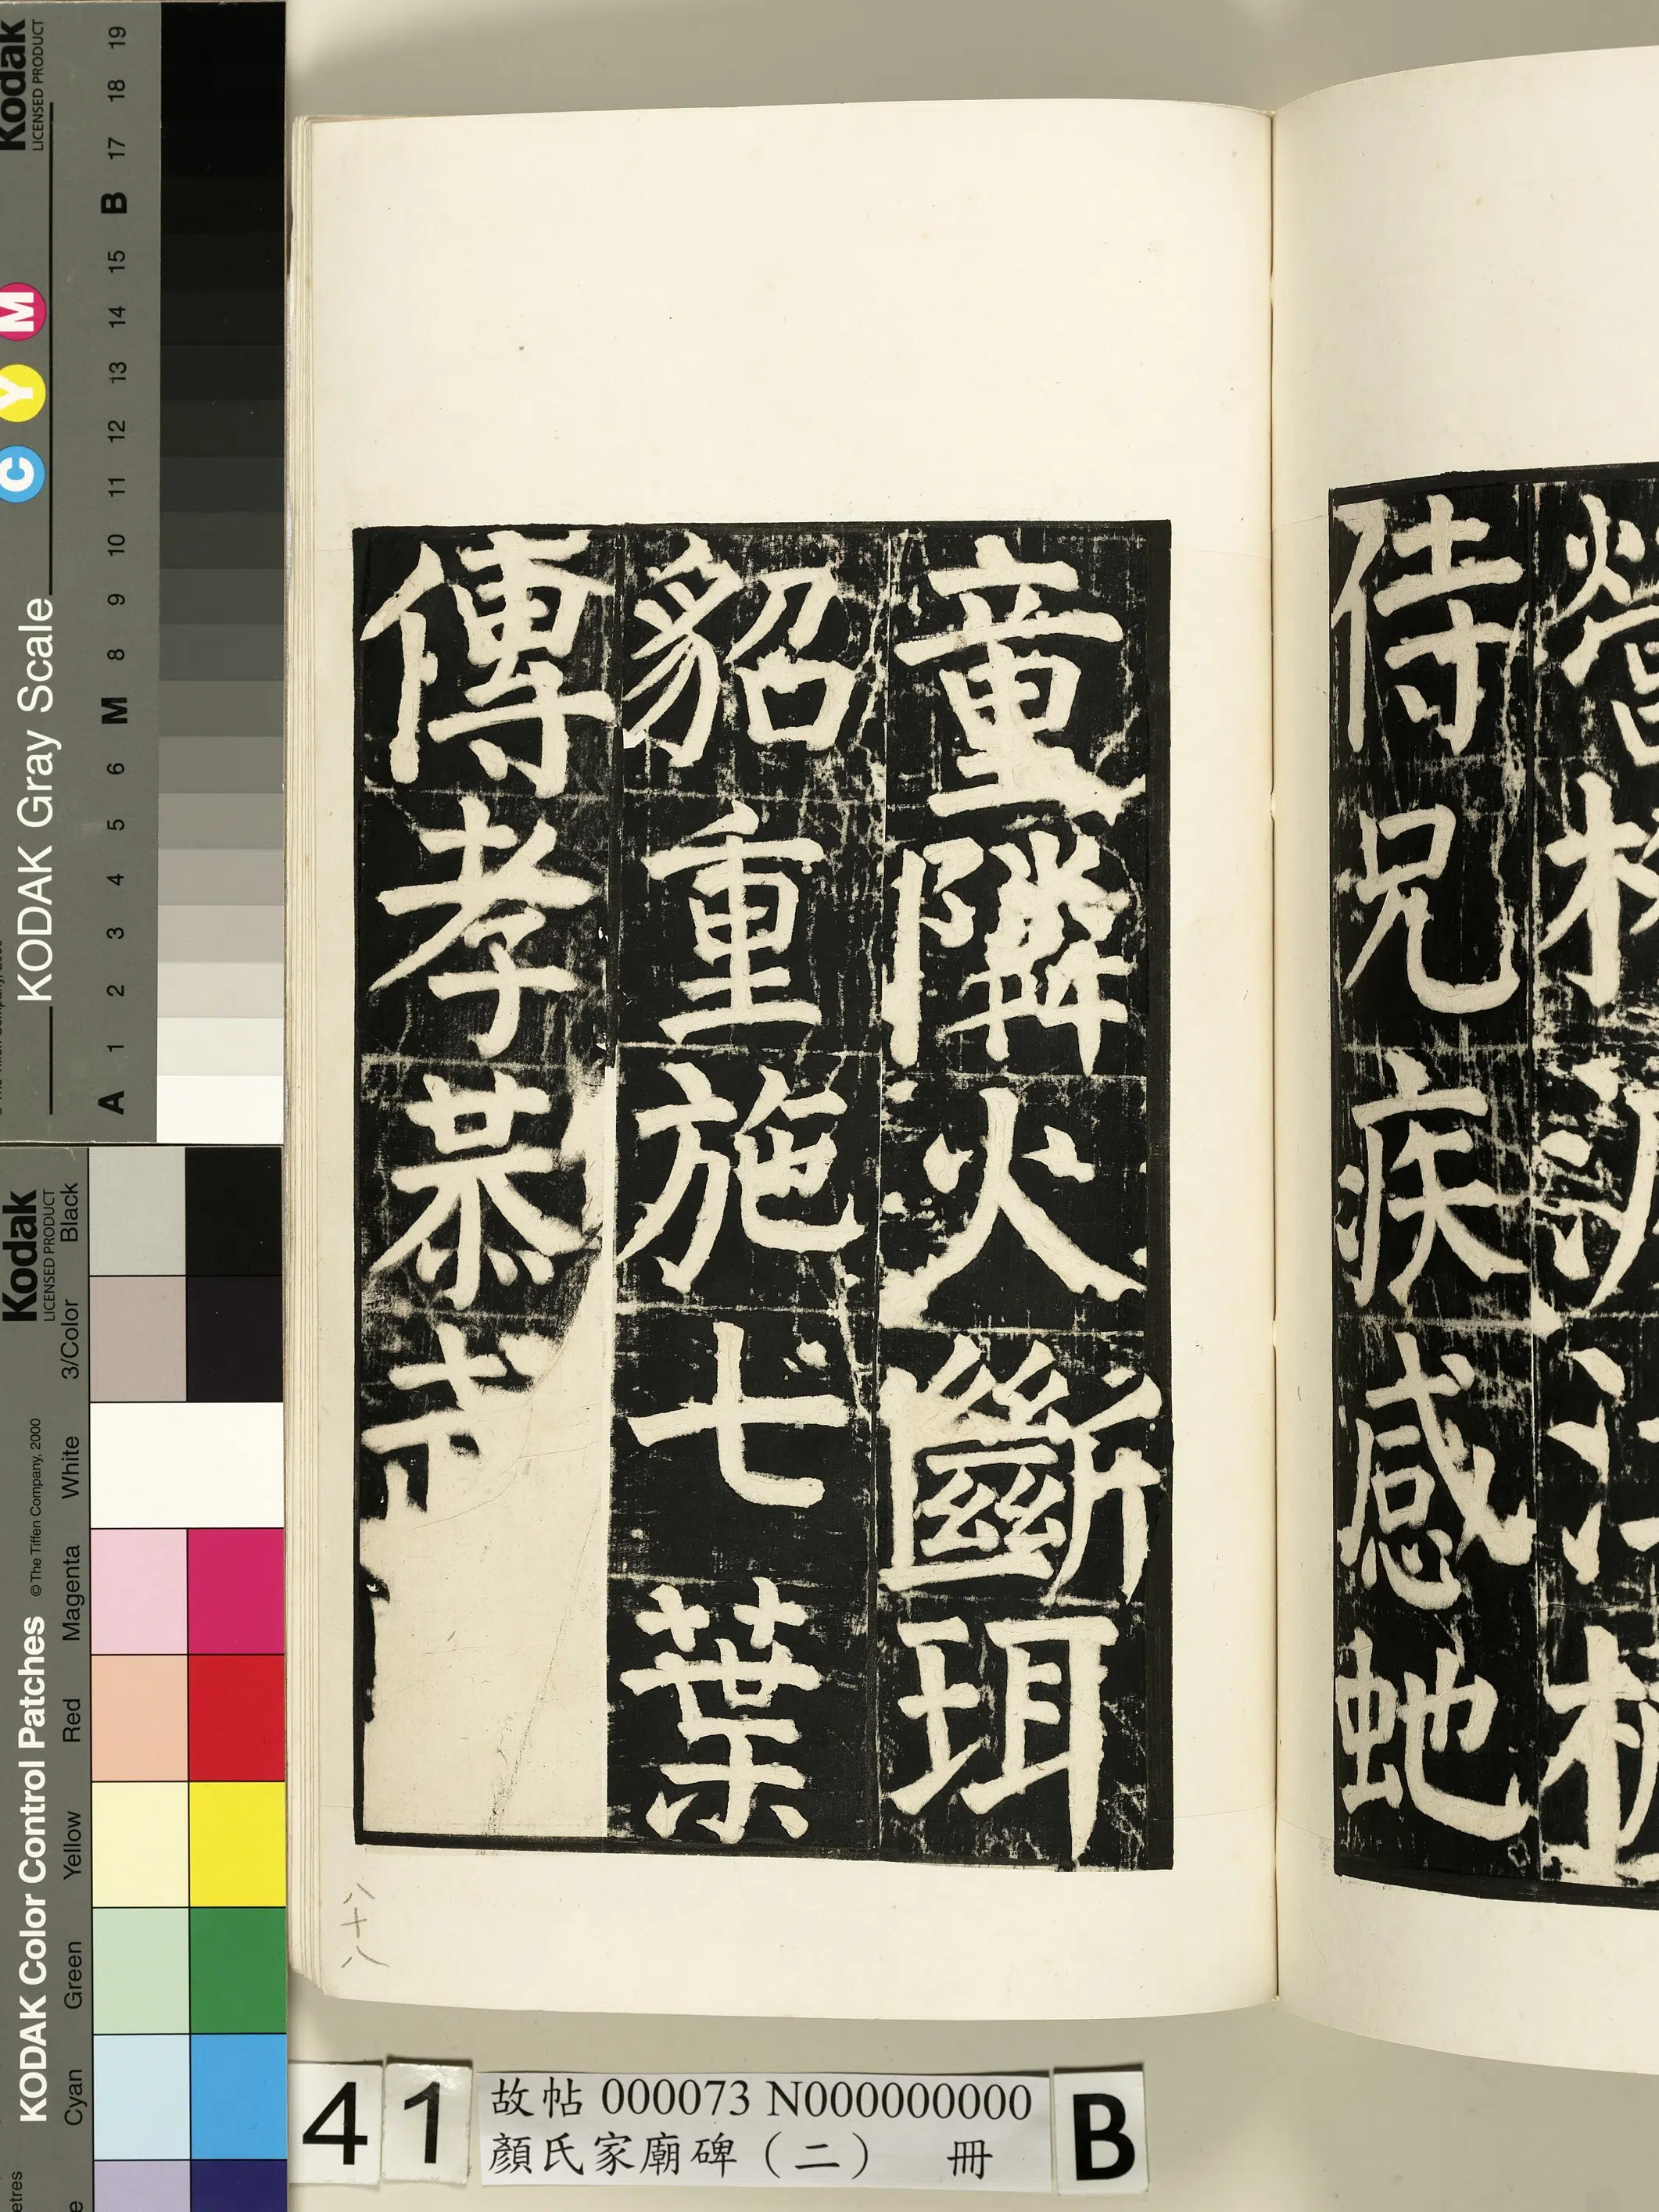 侍兄疾感虵
童隣火斷珥
貂重施七葉
傳孝恭
八十八
4 1
故帖 000073 N000000000
顏氏家廟碑(二) 冊
B
Kodak
LICENSED PRODUCT
KODAK Gray Scale
C Y M
A 1 2 3 4 5 6 M 8 9 10 11 12 13 14 15 B 17 18 19
Kodak
LICENSED PRODUCT
KODAK Color Control Patches
© The Tiffen Company, 2000
Cyan Green Yellow Red Magenta White 3/Color Black